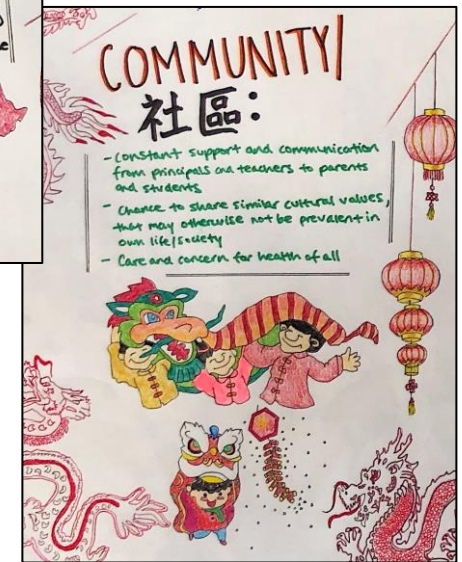 COMMUNITY/
社區:
- constant support and communication
from principals and teachers to parents
and students
- chance to share similar cultural values,
that may otherwise not be prevalent in
own life/society
- Care and concern for health of all